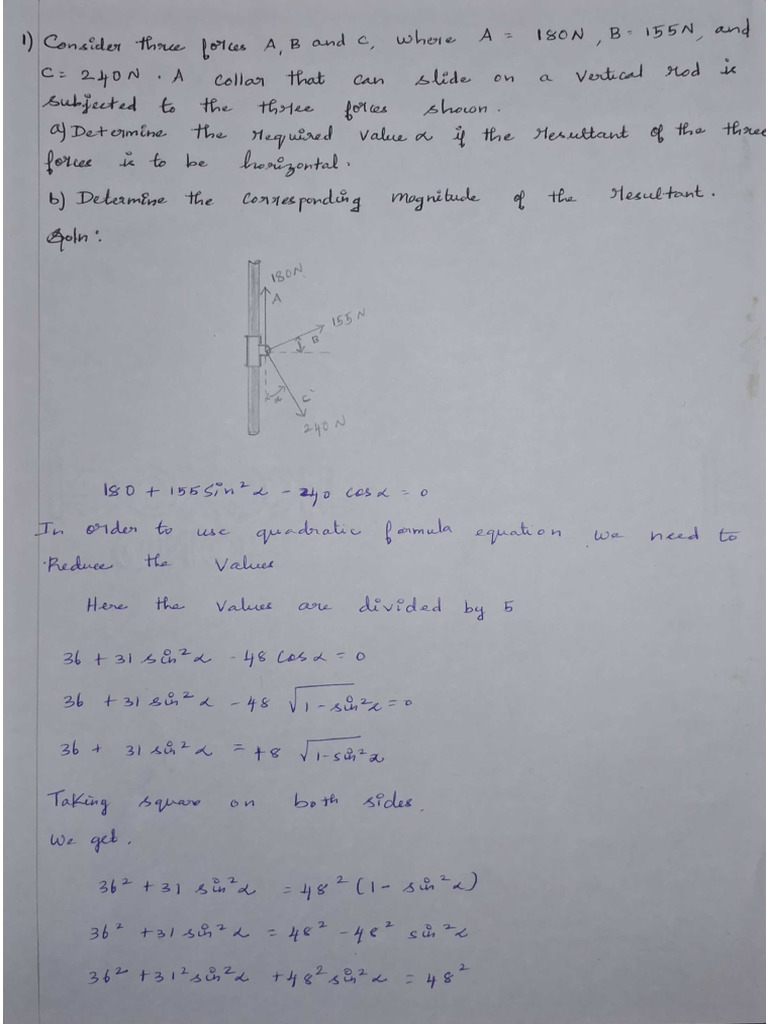 1) Consider three forces A, B and C, where A = 180N, B = 155N, and
C = 240N. A collar that can slide on a vertical rod is
subjected to the three forces shown.
a) Determine the required value α if the resultant of the three
forces is to be horizontal.
b) Determine the corresponding magnitude of the resultant.
Soln:
180N
A
155N
B
α
C
240N
180 + 155 sin²α - 240 cosα = 0
In order to use quadratic formula equation we need to
Reduce the values
Here the values are divided by 5
36 + 31 sin²α - 48 cosα = 0
36 + 31 sin²α - 48 √1-sin²α = 0
36 + 31 sin²α = +8 √1-sin²α
Taking square on both sides.
We get.
36² + 31 sin²α = 48² (1 - sin²α)
36² + 31 sin²α = 48² - 48² sin²α
36² + 31² sin²α + 48² sin²α = 48²